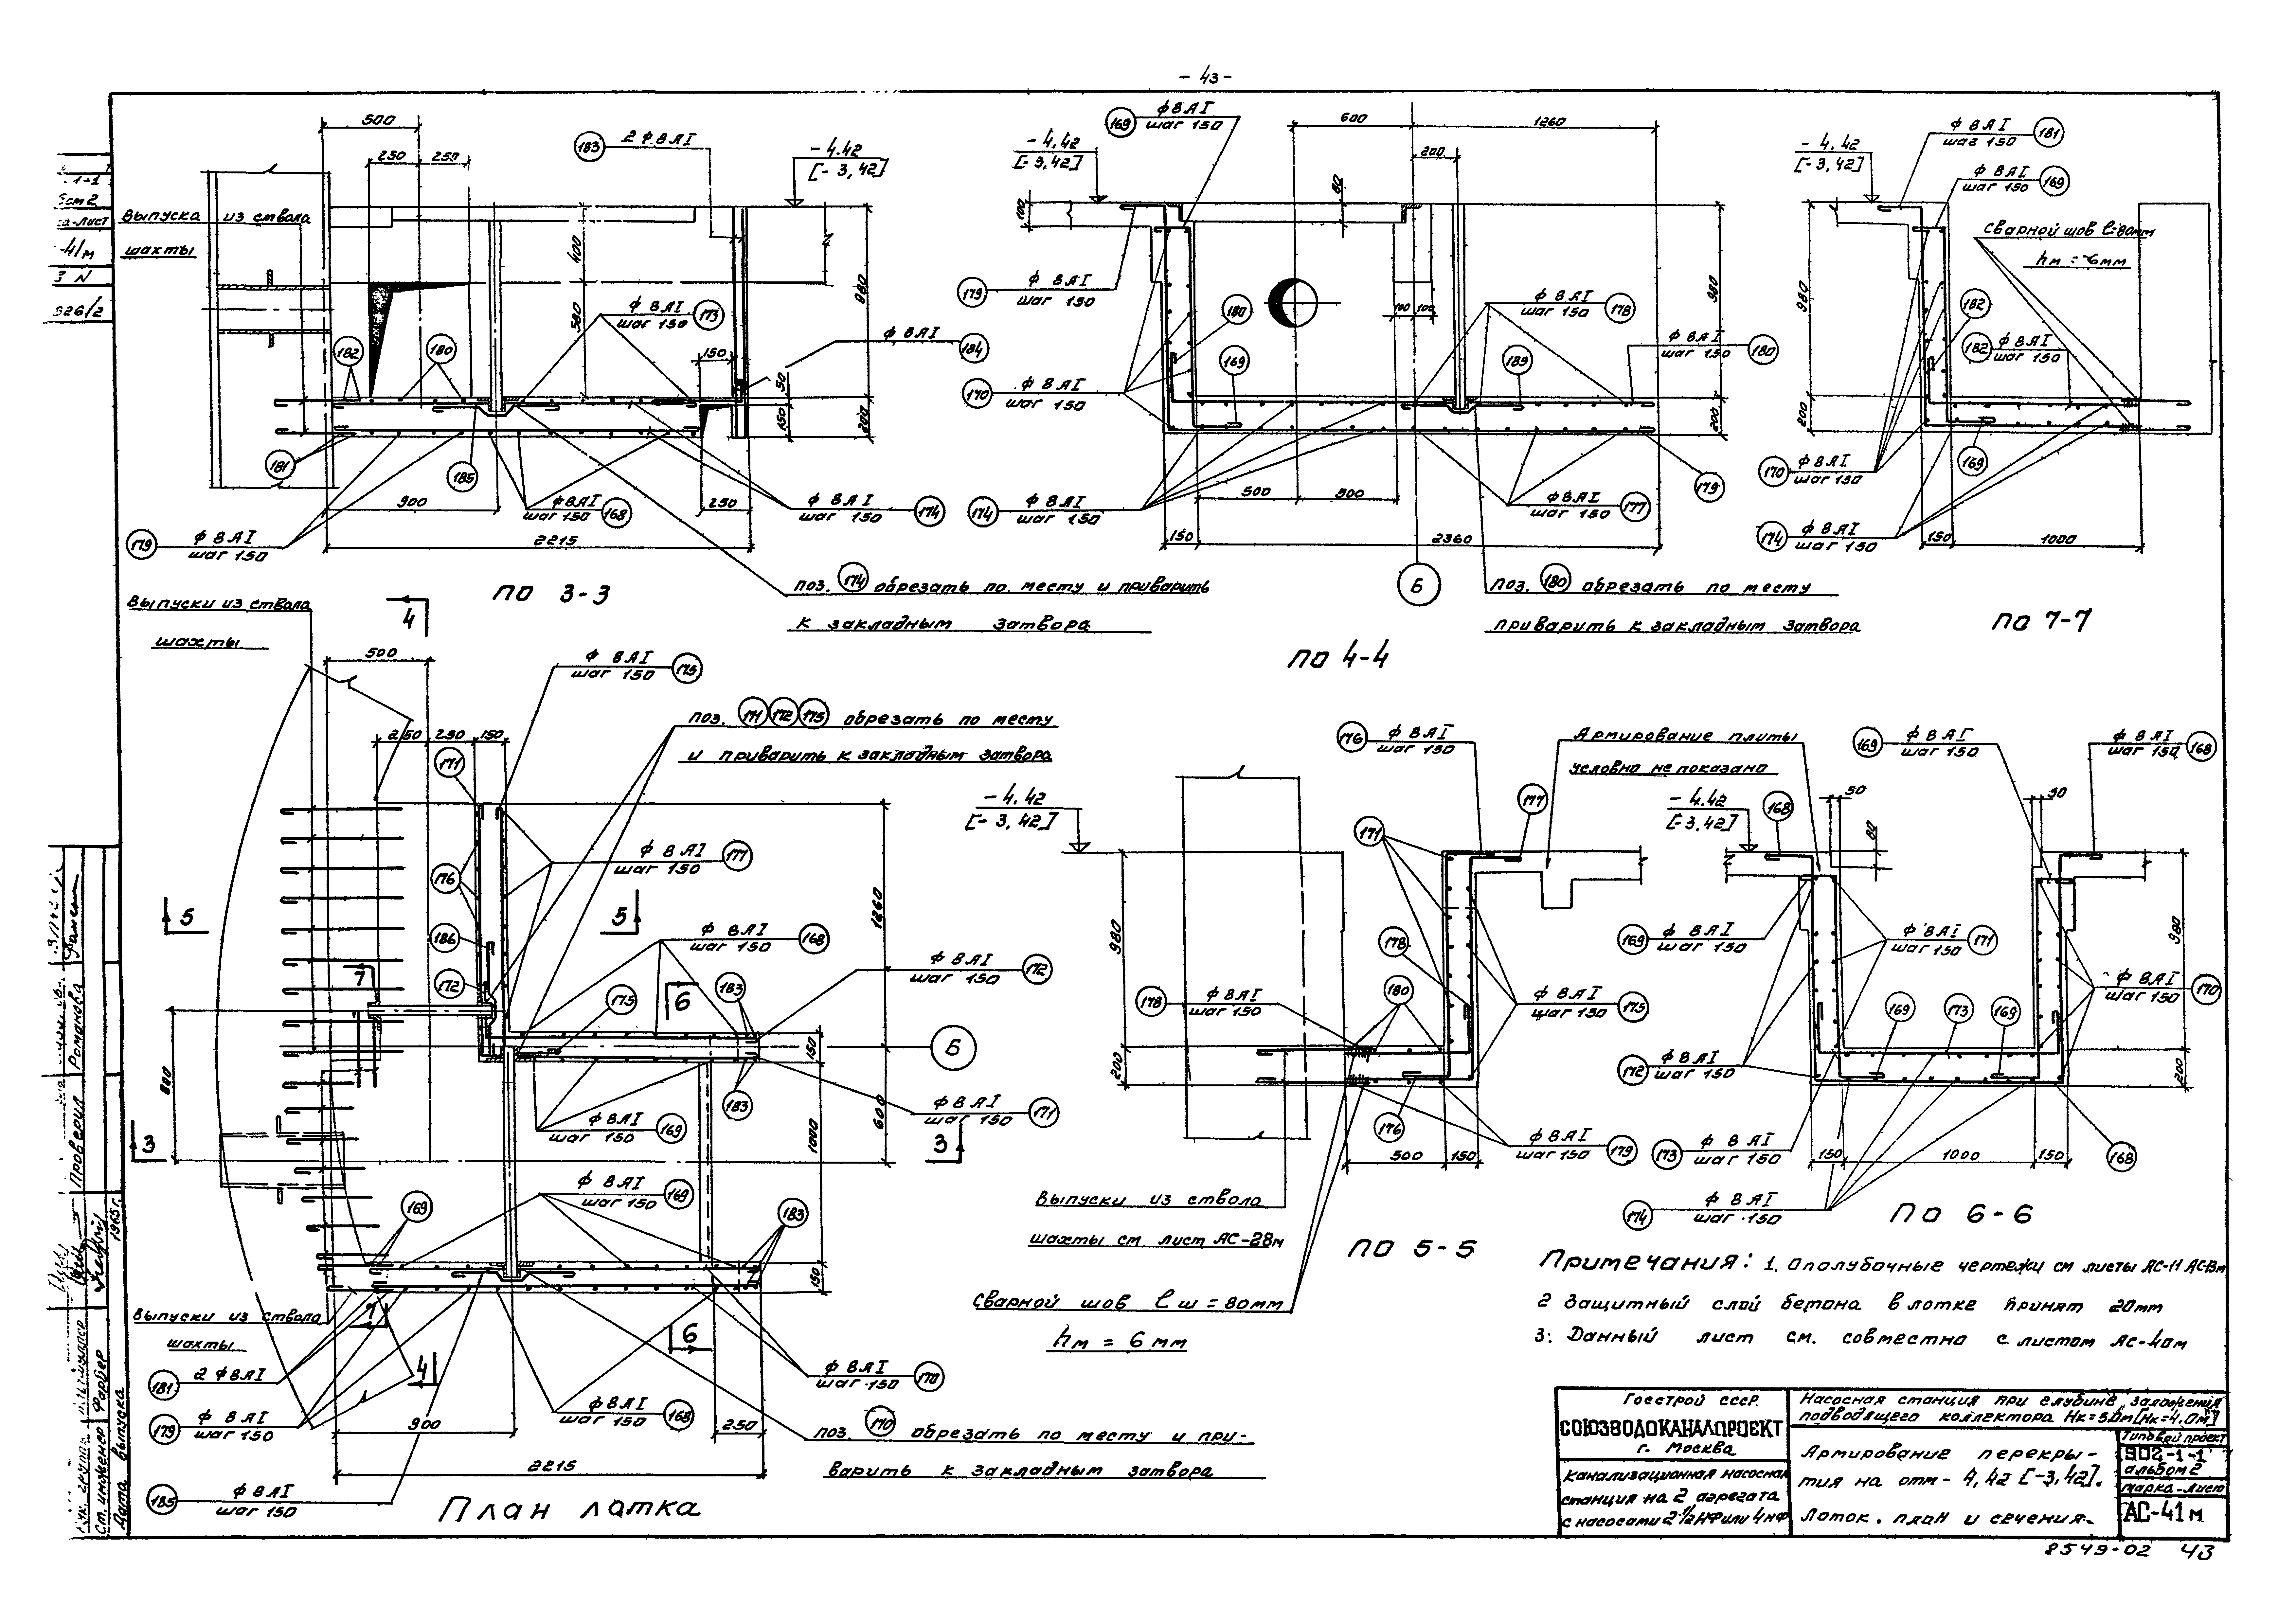 - 43 -
500
250 250
183 2 ф 8 АI
- 4.42
[- 3,42]
Выпуска из ствола
шахты
400
580
980
ф 8 АI
шаг 150 173
ф 8 АI 184
182
180
150
50
150
200
181
185
900
ф 8 АI
шаг 150 168
250
ф 8 АI
шаг 150 174
179 ф 8 АI
шаг 150
2215
по 3-3
поз. 174 обрезать по месту и приварить
к закладным затвора
169 ф 8 АI
шаг 150
600
1260
- 4,42
[- 3,42]
200
80
100
179 ф 8 АI
шаг 150
180
100 100
ф 8 АI
шаг 150 178
980
169
189
ф 8 АI
шаг 150 180
170 ф 8 АI
шаг 150
200
500 500
174 ф 8 АI
шаг 150
ф 8 АI
шаг 150 177
179
150
2360
Б
поз. 180 обрезать по месту
приварить к закладным затвора
по 4-4
ф 8 АI
шаг 150 181
- 4,42
[- 3,42]
ф 8 АI
шаг 150 169
Сварной шов ℓ=80мм
hм = 6мм
980
182
182 ф 8 АI
шаг 150
200
170 ф 8 АI
шаг 150
169
174 ф 8 АI
шаг 150
150
1000
по 7-7
Выпуски из ствола
шахты
4
500
ф 8 АI
шаг 150 175
поз. 171 172 175 обрезать по месту
и приварить к закладным затвора
250 250 150
171
ф 8 АI
шаг 150 177
176
5
5
1260
186
ф 8 АI
шаг 150 168
7
172
175
6
183
ф 8 АI
шаг 150 172
Б
150
880
183
ф 8 АI
шаг 150 171
ф 8 АI
шаг 150 169
600
1000
3
3
ф 8 АI
шаг 150 169
169
183
150
Выпуски из ствола
шахты
7
6
4
181 2 ф 8 АI
179 ф 8 АI
шаг 150
ф 8 АI
шаг 150 170
900
ф 8 АI
шаг 150 168
250
поз. 170 обрезать по месту и при-
варить к закладным затвора
2215
185 ф 8 АI
шаг 150
План лотка
176 ф 8 АI
шаг 150
Армирование плиты
условно не показано
- 4.42
[- 3,42]
177
171
980
178
178 ф 8 АI
шаг 150
180
ф 8 АI
шаг 150 175
200
176
ф 8 АI
шаг 150 179
500 150
Выпуски из ствола
шахты см. лист АС-28м
по 5-5
Сварной шов ℓш = 80мм
hм = 6 мм
169 ф 8 АI
шаг 150
ф 8 АI
шаг 150 168
- 4.42
[-3,42]
168
50
50
80
169 ф 8 АI
шаг 150
ф 8 АI
шаг 150 171
980
169
173
169
ф 8 АI
шаг 150 170
172 ф 8 АI
шаг 150
200
173 ф 8 АI
шаг 150
150 1000 150
168
174 ф 8 АI
шаг 150
по 6-6
Примечания: 1. Опалубочные чертежи см листы АС-11
2 Защитный слой бетона в лотке принят 20мм
3. Данный лист см. совместно с листом АС-40м
Госстрой СССР.
СОЮЗВОДОКАНАЛПРОЕКТ
г. Москва
Канализационная насосная
станция на 2 агрегата
с насосами 2½НФ или 4НФ
Насосная станция при глубине заложения
подводящего коллектора Нк=5.0м [Нк=4.0м]
Армирование перекры-
тия на отм - 4,42 [-3,42].
Лоток. план и сечения.
Типовой проект
902-1-1
альбом 2
марка-лист
АС-41м
8549-02 43
-41м
926/2
Проверил Романова
Ст. инженер Фарбер
Дата выпуска 1965г.